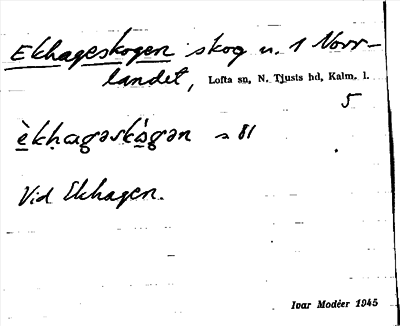 Ekhageskogen skog u. 1 Norr-
landet, Lofta sn, N. Tjusts hd, Kalm. l.
5
è̱khagəskò̱gən s 81
Vid Ekhagen.
Ivar Modéer 1945